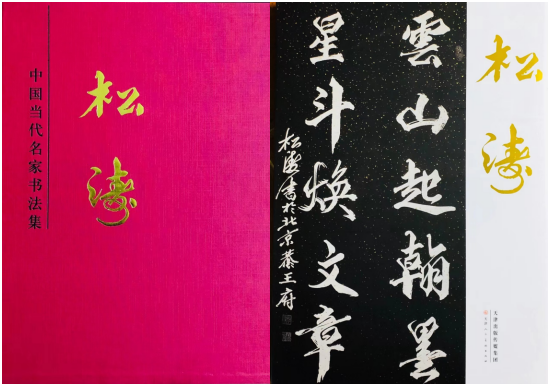 中国当代名家书法集
松涛
雲山起翰墨
星斗焕文章
松涛書於北京恭王府
松涛
天津出版传媒集团